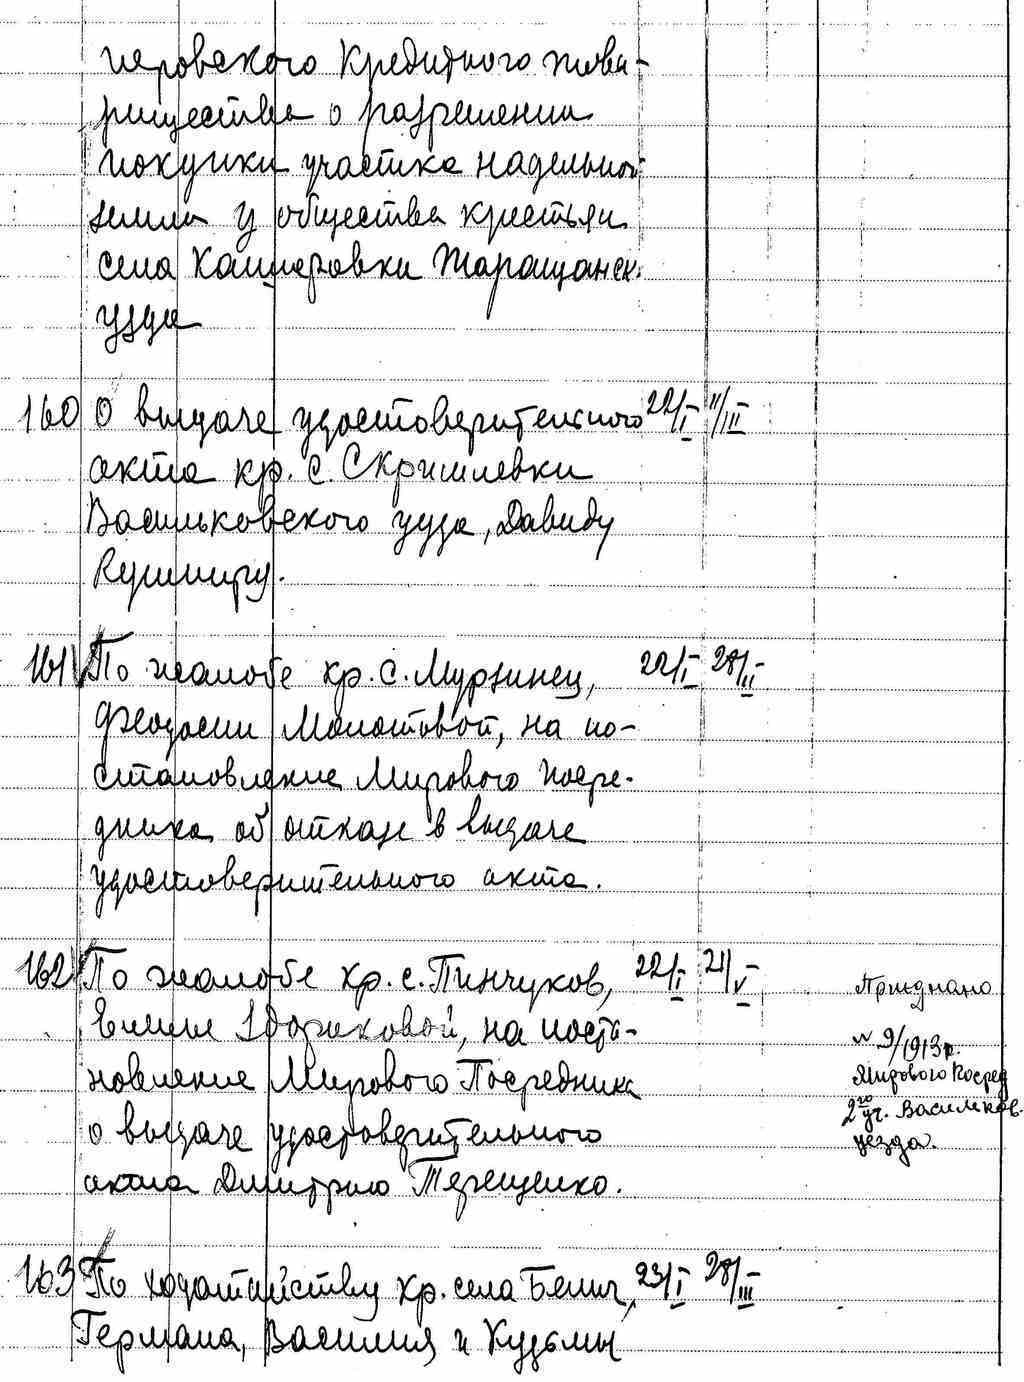 перовского Кредитного това-
рищества о разрешении
покупки участка надельной
земли у общества крестьян
села Кашперовки Таращанск.
уезда
160 О выдаче удостоверительного 22/I 11/III
акта кр. с. Скришлевки
Васильковского уезда, Давиду
Кушниру.
161 По жалобе кр. с. Мурзинец, 22/I 28/II
Феодосии Молотовой, на по-
становление Мирового Посре-
дника об отказе в выдаче
удостоверительного акта.
162 По жалобе кр. с. Пинчуков, 22/I 21/V
на поста-
новление Мирового Посредника
о выдаче удостоверительного
акта Дмитрию Терещенко.
№ 9/1913 г.
Мирового Посред
2го уч. Васильков.
уезда.
163 По ходатайству кр. села 23/I 28/III
Германа, Василия и Кузьмы